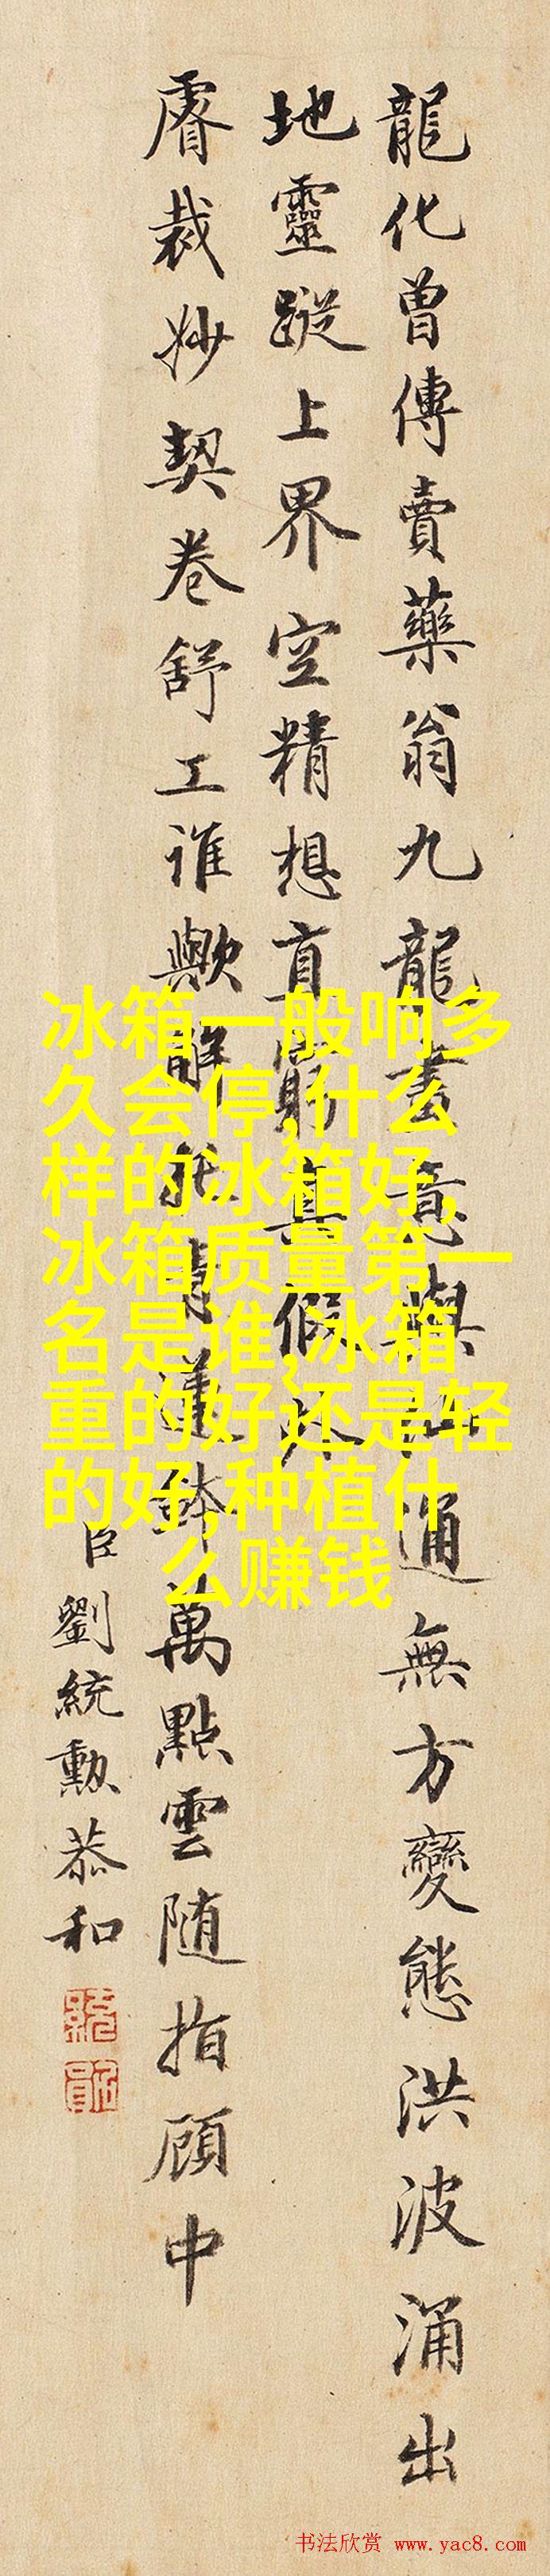 龍化曾傳賣藥翁九龍畫意與通無方變態洪波涌出
地靈蹤上界空精想直窮真假外
睿裁妙契卷舒工誰歟解萬點雲随指顧中
臣劉統勳恭和
冰箱一般响多
久会停,什么
样的冰箱好,
冰箱质量第一
名是谁,冰箱
重的好还是轻
的好,种植什
么赚钱
书法欣赏 www.yac8.com